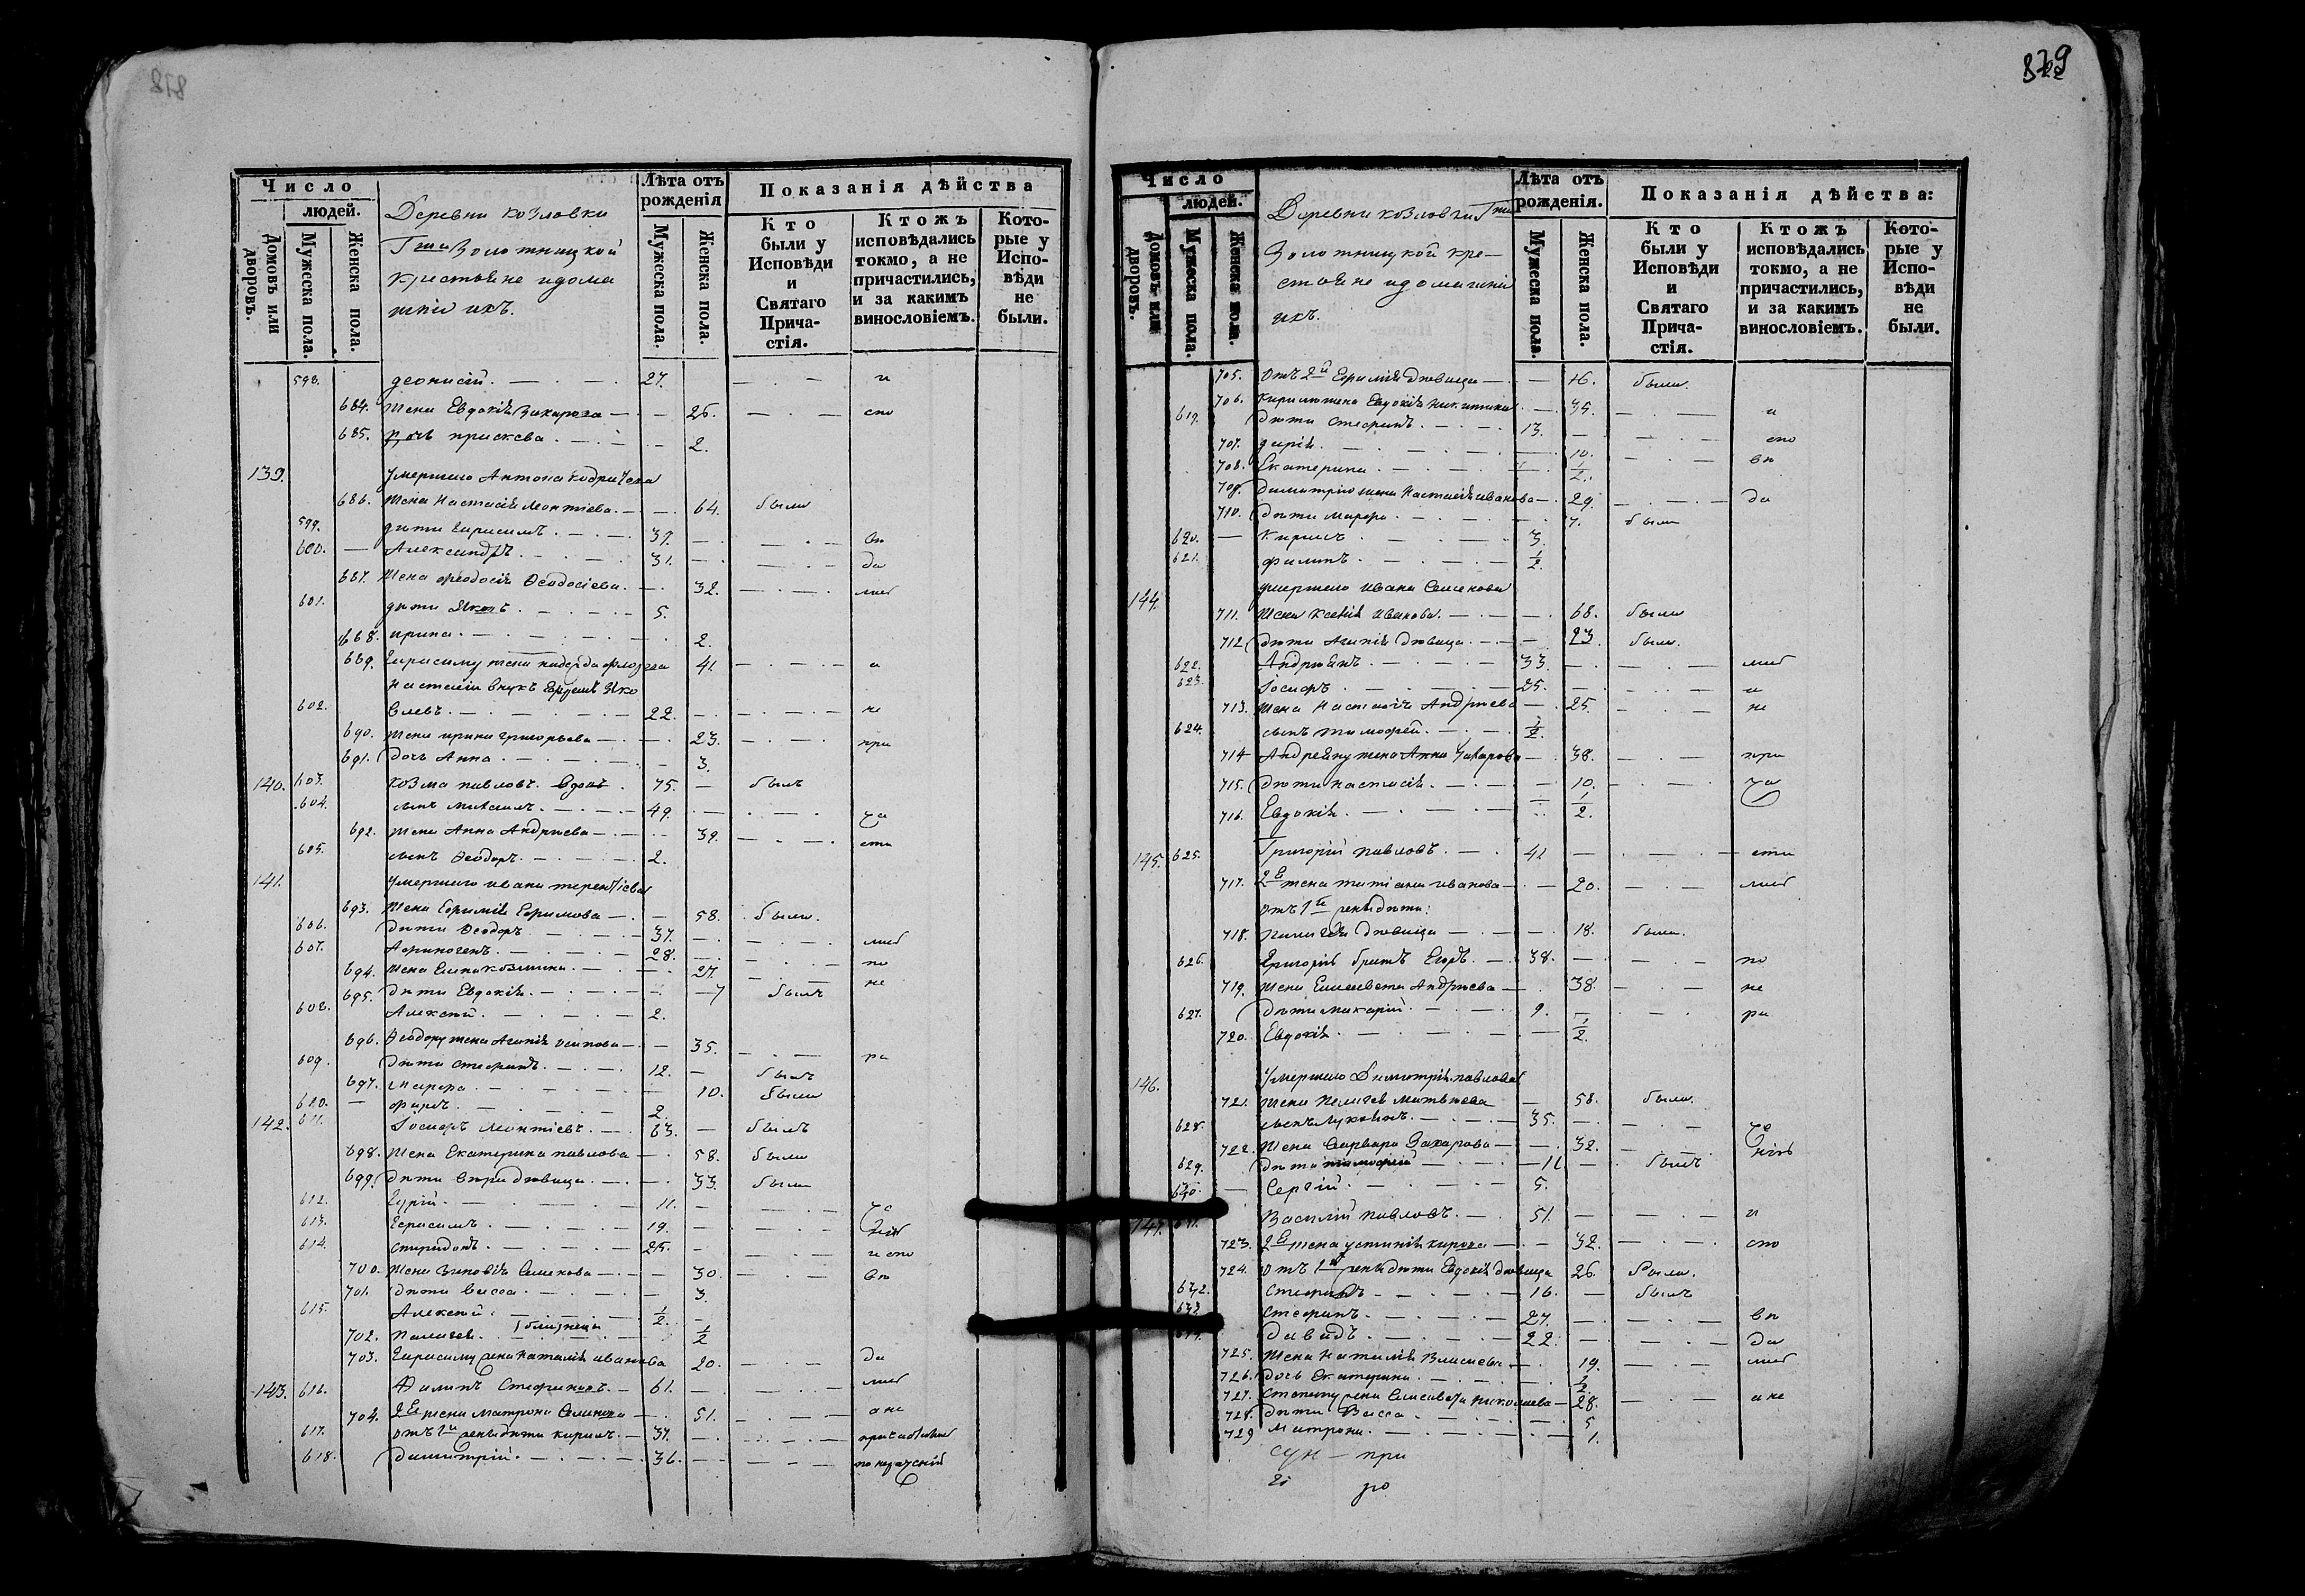 879
Число
людей.
Домовъ или дворовъ.
Мужеска пола.
Женска пола.
Деревни козловки
Г-жи Золотницкой
крестьяне идома
шнiи ихъ.
Лѣта отъ рожденія
Мужеска пола.
Женска пола.
Показанія дѣйства
Кто были у Исповѣди и Святаго Причастія.
Ктожъ исповѣдались токмо, а не причастились, и за какимъ винословіемъ.
Которые у Исповѣди не были.
598. деонисій. 27. и
684. жена Евдокія Захарова 26. спо
685. дочь прискева 2.
139. умершаго Антона
686. жена Настасія Леонтіева 64. были
599. дѣти Герасимъ 39. вѣ
600. Александръ 31. да
687. жена феодосія Ѳеодосіева 32. лис
601. дѣти Яковъ 5.
688. ирина 2.
689. Герасиму жена надежда 41. а
Настасіи внукъ Яко
602. влевъ 22. не
690. жена ирина григорьева 23. при
691. дочь Анна 3.
140. 603. козма павловъ вдовъ 75. былъ
604. сынъ михаилъ 49. ча
692. жена Анна Андрѣева 39. сти
605. сынъ Ѳеодоръ 2.
141. умершаго ивана терентіева
693. жена Ефимія Ефимова 58. были.
606. дѣти Ѳеодоръ 37. лис
607. Афиногенъ 28. по
694. жена Елена козмина 27. не
695. дѣти Евдокія 7 былъ
608. Алексѣй 2.
696. Ѳеодору жена Агапія осипова 35. ра
609. дѣти Стефанъ 12. былъ
697. марфа 10. были
610. фирсъ 2.
142. 611. Іосифъ Леонтіевъ 63. былъ
698. жена Екатерина павлова 58. были
699. дѣти вѣра дѣвица 33. были
612. Гурій 11. че
613. Герасимъ 19.
614. спиридонъ 25. и спо
700. жена Зиновія Семенова 30. вѣ
701. дѣти васса 3.
615. Алексѣй 1/2
близнецы
702. пелагея 1/2
703. Герасиму жена наталія иванова 20. да
143. 616. Филипъ Стефановъ 61. лис
704. 2я жена матрона Семенова 51. а не
617. отъ 1й жены дѣти кирилъ 37.
618. димитрій 36.
Число
людей.
Домовъ или дворовъ.
Мужеска пола.
Женска пола.
Деревни козловки Г-жи
Золотницкой кре-
стьяне идомашнiи
ихъ.
Лѣта отъ рожденія.
Мужеска пола.
Женска пола.
Показанія дѣйства:
Кто были у Исповѣди и Святаго Причастія.
Ктожъ исповѣдались токмо, а не причастились, и за какимъ винословіемъ.
Которые у Исповѣди не были.
705. отъ 2й Ефимія дѣвица 16. были.
706. Кирилы жена Евдокія никитина 35. и
619. дѣти стефанъ 13. спо
707. дарія 10. вѣ
708. Екатерина 1/2.
709. димитрію жена Настасія иванова 29. да
710. дѣти марфа 7. были
620. кирилъ 3.
621. филипъ 1/2.
144. умершаго ивана Семенова
711. жена ксенія иванова 68. были
712 дѣти Агапія дѣвица 23 были.
622. Андрѣянъ 33. лис
623. Іосифъ 25. и
713. жена Настасія Андрѣева 25. не
624. сынъ тимофей 1/2.
714 Андреяну жена Анна Захарова 38. при
715. дѣти настасія 10. ча
716. Евдокія 1/2.
145. 625. Григорій павловъ 41 сти
717. 2я жена татіана иванова 20. лис
отъ 1й жены дѣти:
718. пелагея дѣвица 18. были.
626. Григорія братъ Егоръ 38. по
719. жена Елисавета Андрѣева 38. не
627. дѣти макарій 9. ра
720. Евдокія 1/2.
146. умершаго димитрія павлова
721. жена пелагея матвѣева 58. были.
628. сынъ лукьянъ 35. че
722. жена варвара Захарова 32. ніѣ
629. дѣти тимофей 11. былъ
630. Сергій 5.
147. 631. Василій павловъ 51. и
723. 2я жена устинія кирова 32. спо
724. отъ 1й жены дѣти Евдокія дѣвица 26. были.
632. стефанъ 16. былъ
633 стефанъ 27. вѣ
634. давидъ 22. да
725. жена Наталія Власіева 19. лис
726. дочь Екатерина 1/2
727. Степану жена Елисавета николаева 28. а не
728. дѣти васса 5
729 матрона 1.